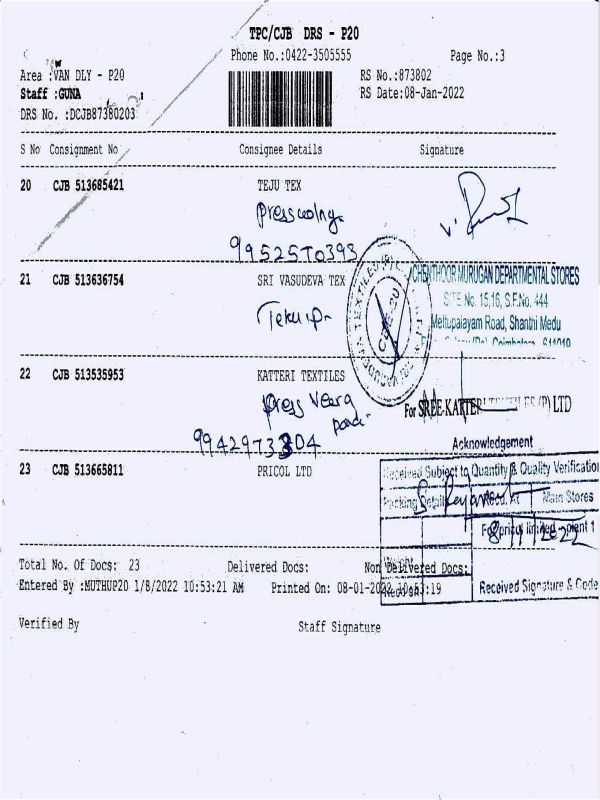 TPC/CJB DRS - P20
Phone No.:0422-3505555 Page No.:3
Area :VAN DLY - P20 RS No.:873802
Staff :GUNA RS Date:08-Jan-2022
DRS No. :DCJB87380203
S No Consignment No Consignee Details Signature
20 CJB 513685421 TEJU TEX
9952570393
21 CJB 513636754 SRI VASUDEVA TEX
CHENTHOOR MURUGAN DEPARTMENTAL STORES
SITE No. 15,16, S.F.No. 444
Mettupalayam Road, Shanthi Medu
Coimbatore 641019
22 CJB 513535953 KATTERI TEXTILES
press
For SREE KATTERI TEXTILES (P) LTD
Acknowledgement
23 CJB 513665811 PRICOL LTD
Received Subject to Quantity & Quality Verification
Main Stores
For pricol limited - plant 1
8/1/2022
Total No. Of Docs: 23 Delivered Docs: Non Delivered Docs:
Entered By :MUTHUP20 1/8/2022 10:53:21 AM Printed On: 08-01-2022 10:53:19
Received Signature & Code
Verified By Staff Signature